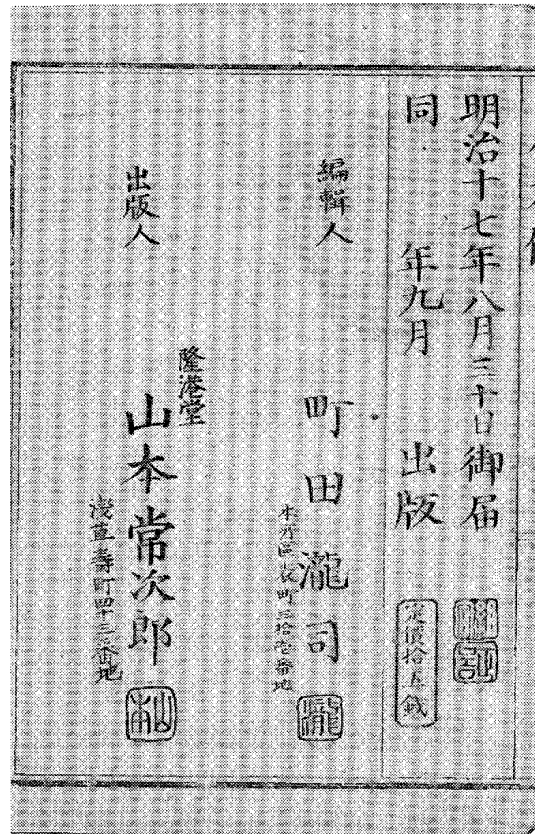 明治十七年八月三十日御届
同　　年九月　　出版
定價拾五銭
編輯人
町田瀧司
本所區表町三拾壱番地
出版人
隆港堂
山本常次郎
淺草壽町四十三番地